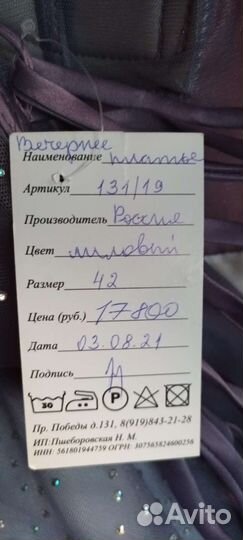 Вечернее
Наименование платье
Артикул 131/19
Производитель Россия
Цвет лиловый
Размер 42
Цена (руб.) 17800
Дата 03.08.21
Подпись
30 P
Пр. Победы д.131, 8(919)843-21-28
ИП:Пшеборовская Н. М.
ИНН: 561801944759 ОГРН: 307565824600256
Avito